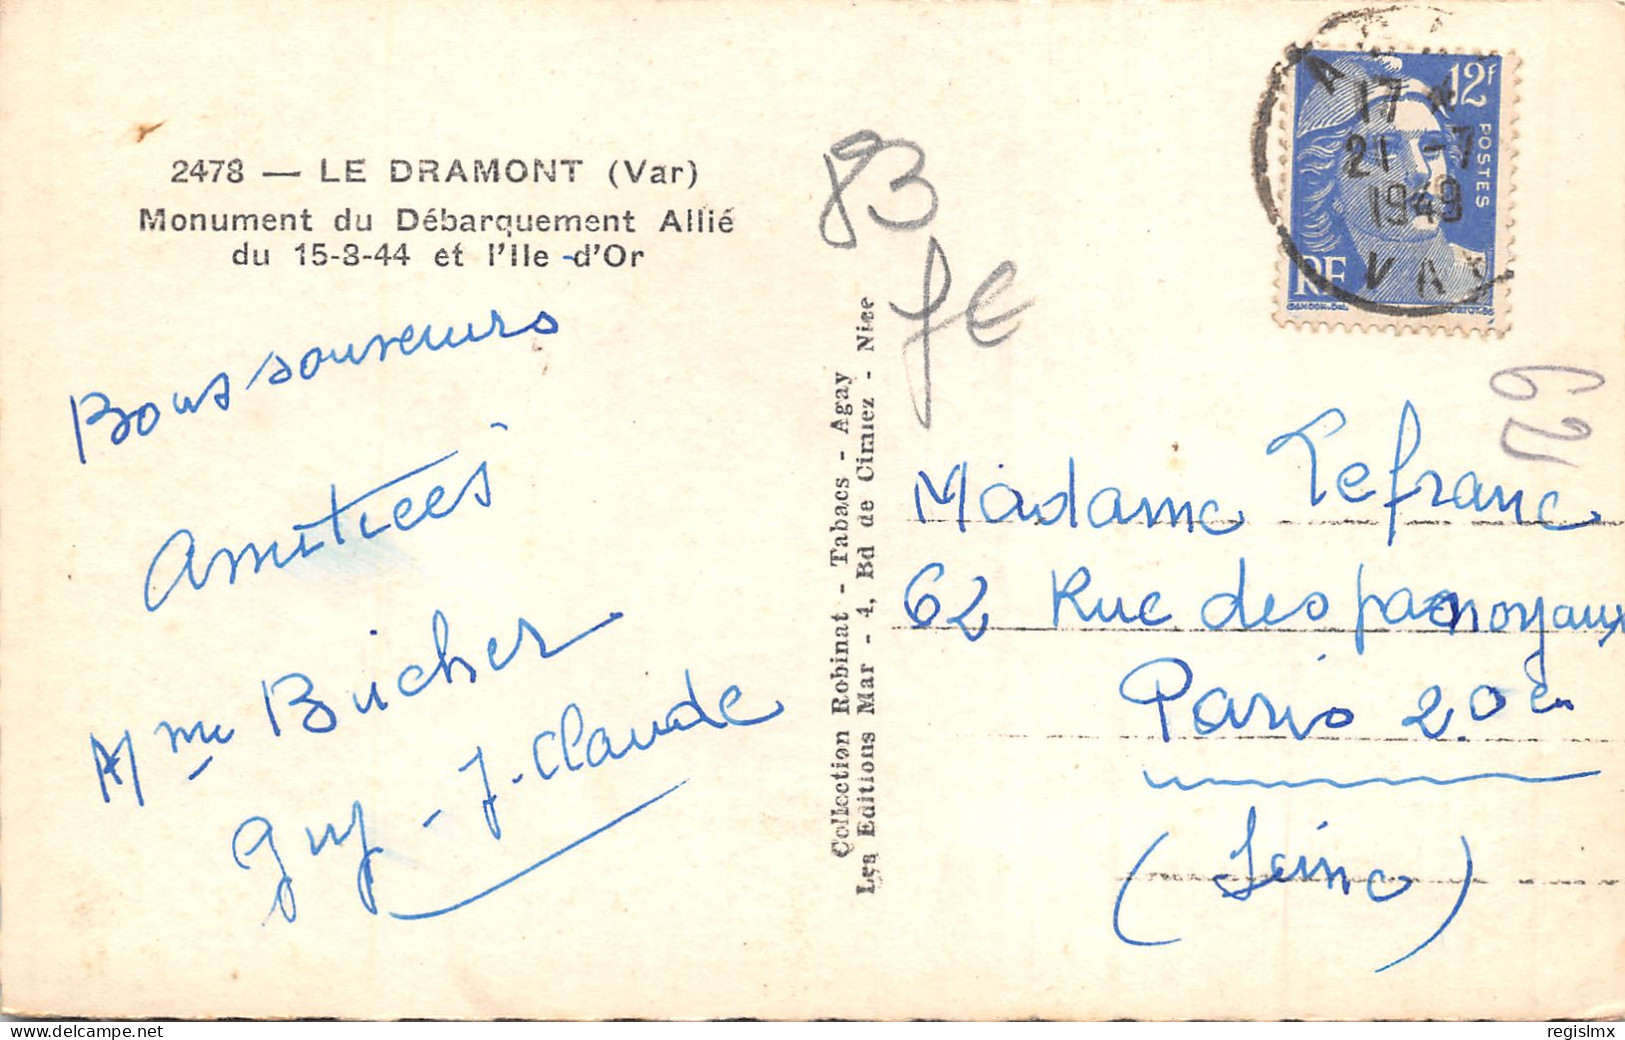 2478 — LE DRAMONT (Var)
Monument du Débarquement Allié
du 15-8-44 et l'Ile d'Or
Bons souvenirs
Amitiées
Mme Bucher
Guy - J. Claude
Collection Robinat - Tabacs - Agay
Les Editions Mar - 4, Bd de Cimiez - Nice
83
7€
12f
POSTES
RF
17
21 -7
1949
VAR
62
Madame Lefranc
62 Rue des panoyaux
Paris 20e
(Seine)
delcampe.net
regislmx